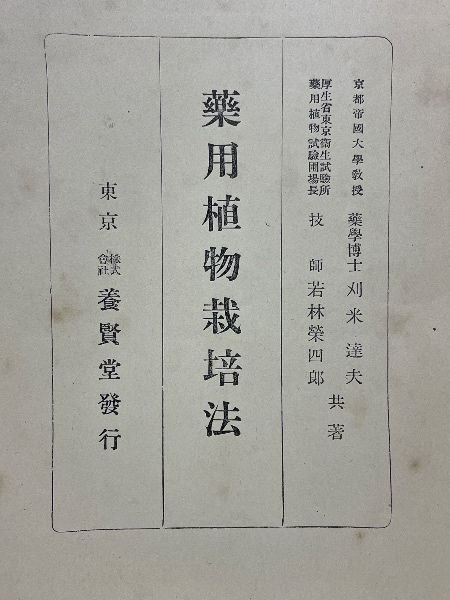 京都帝國大學教授 藥學博士 刈米達夫
厚生省東京衞生試驗所
藥用植物試驗圃場長 技師 若林榮四郎
共著
藥用植物栽培法
東京 株式會社 養賢堂發行